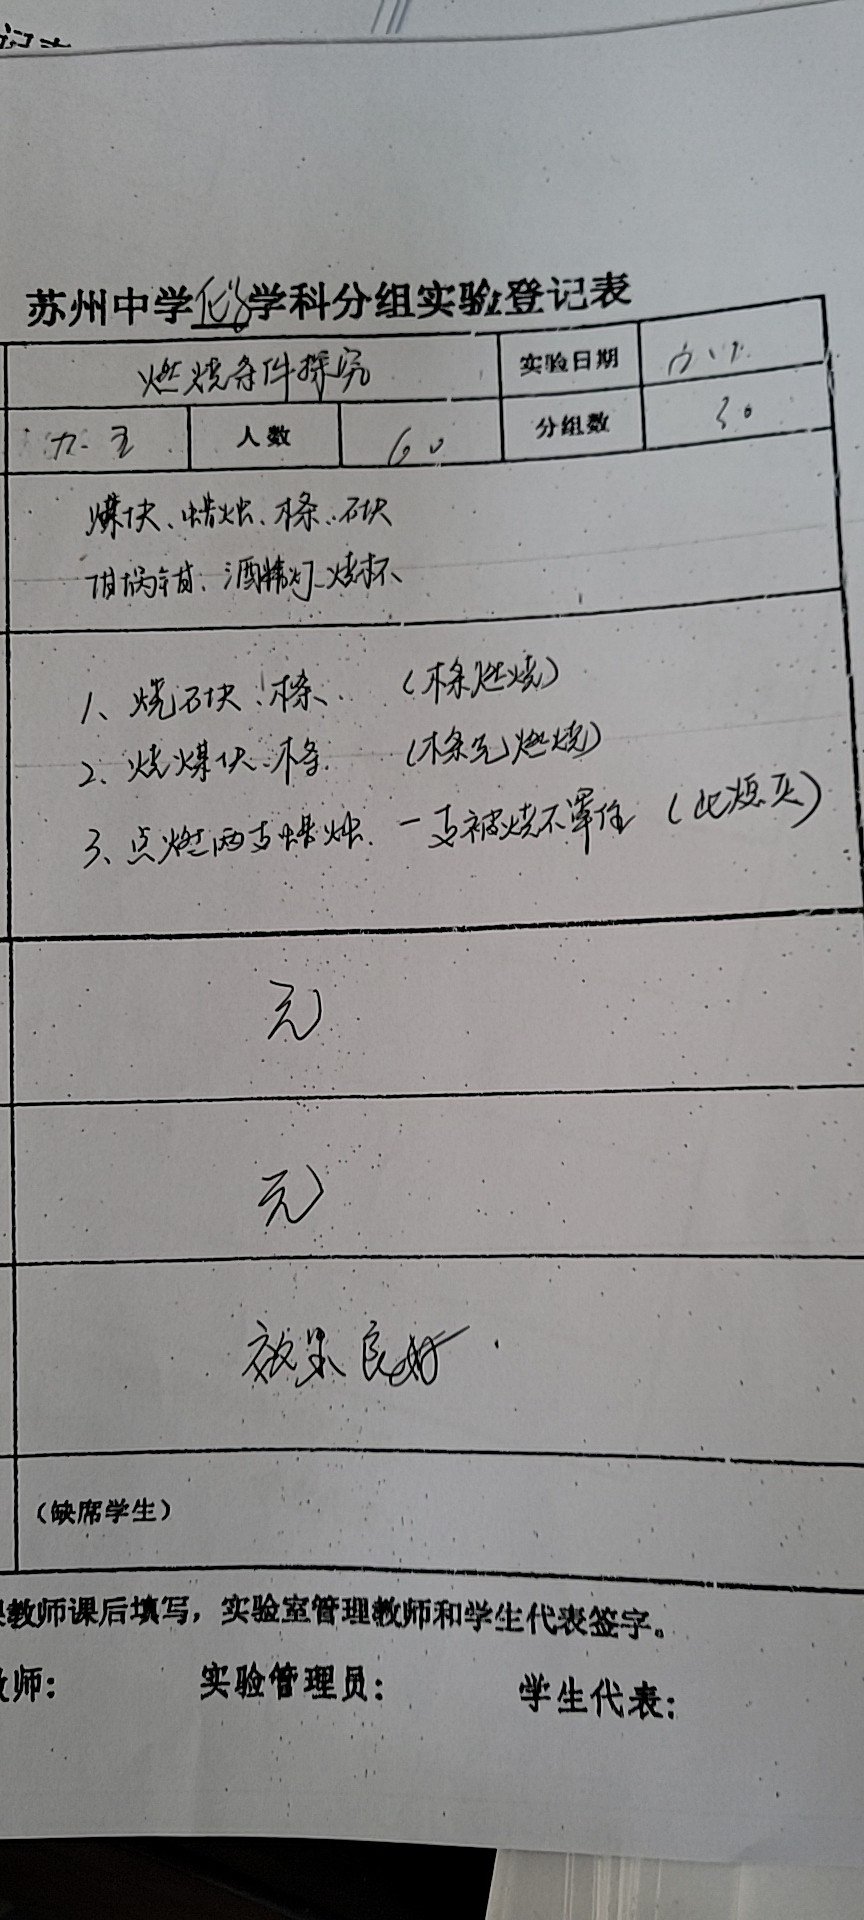 苏州中学化学学科分组实验登记表
燃烧条件探究 实验日期
人数 60 分组数 30
煤块、蜡烛、木条、石块
坩埚钳、酒精灯、烧杯、
1、烧石块、木条、 (木条燃烧)
2、烧煤块、木条. (木条先燃烧)
3、点燃两支蜡烛、一支被烧杯罩住 (此熄灭)
无
无
效果良好.
(缺席学生)
教师课后填写，实验室管理教师和学生代表签字。
师： 实验管理员： 学生代表：